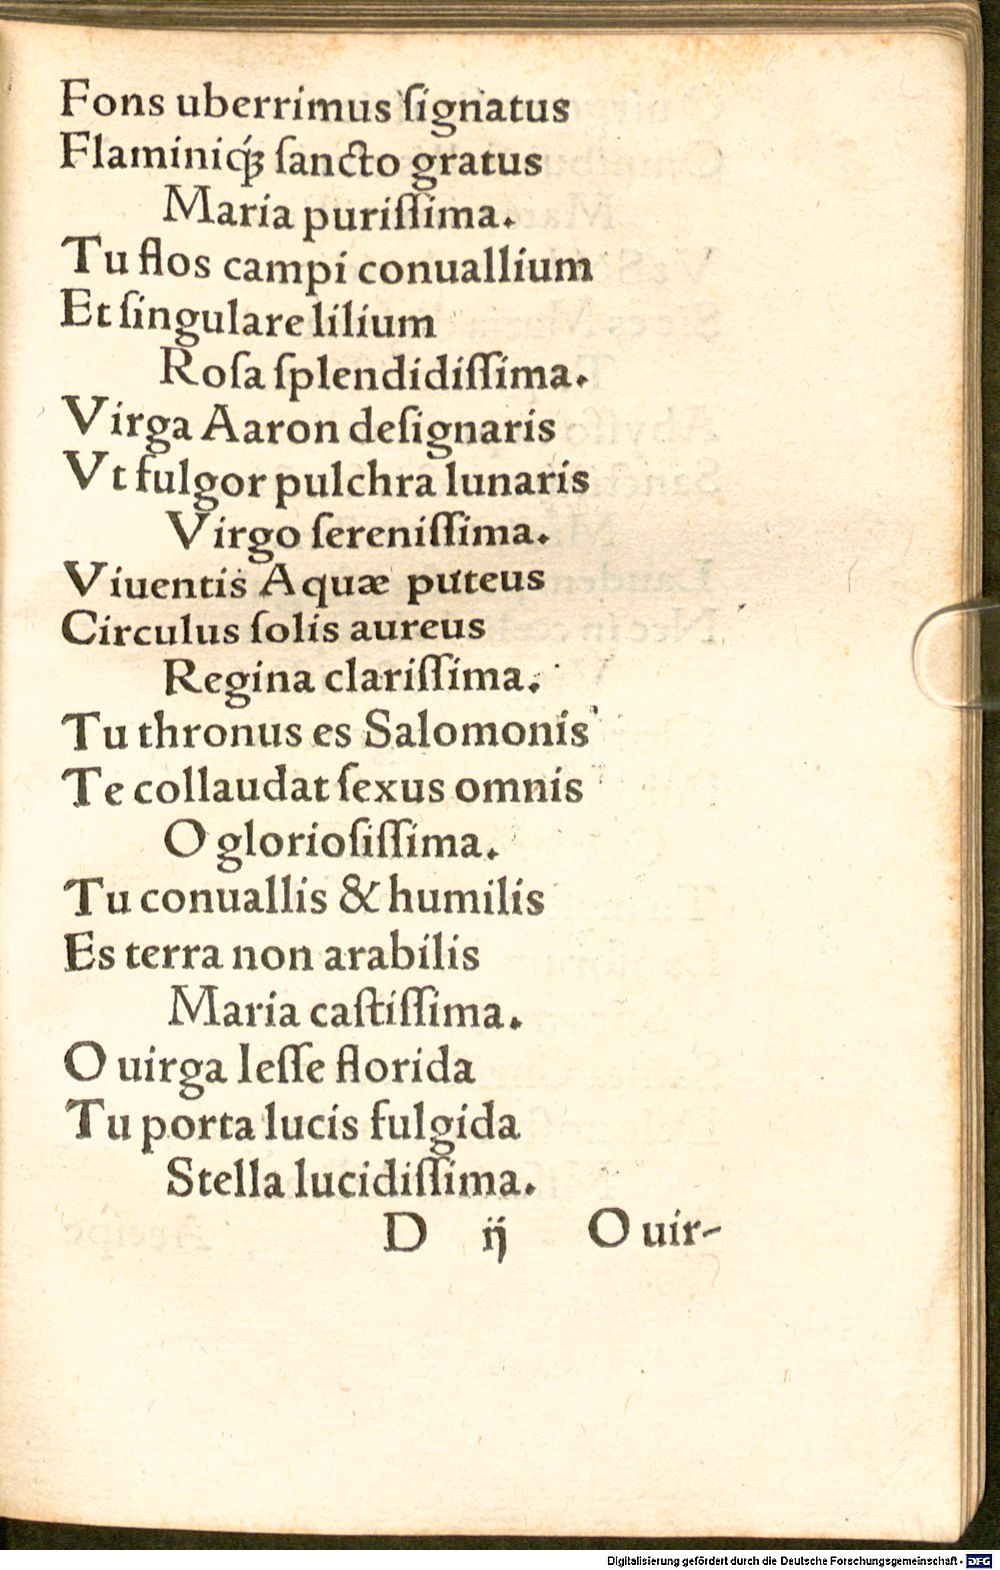 Fons uberrimus ſignatus
Flaminiq́ꝫ ſancto gratus
Maria puriſſima.
Tu flos campi conuallium
Et ſingulare lilium
Roſa ſplendidiſſima.
Virga Aaron deſignaris
Vt fulgor pulchra lunaris
Virgo ſereniſſima.
Viuentis Aquæ puteus
Circulus ſolis aureus
Regina clariſſima.
Tu thronus es Salomonis
Te collaudat ſexus omnis
O glorioſiſſima.
Tu conuallis & humilis
Es terra non arabilis
Maria caſtiſſima.
O uirga Ieſſe florida
Tu porta lucis fulgida
Stella lucidiſſima.
D ij O uir-
Digitalisierung gefördert durch die Deutsche Forschungsgemeinschaft - DFG